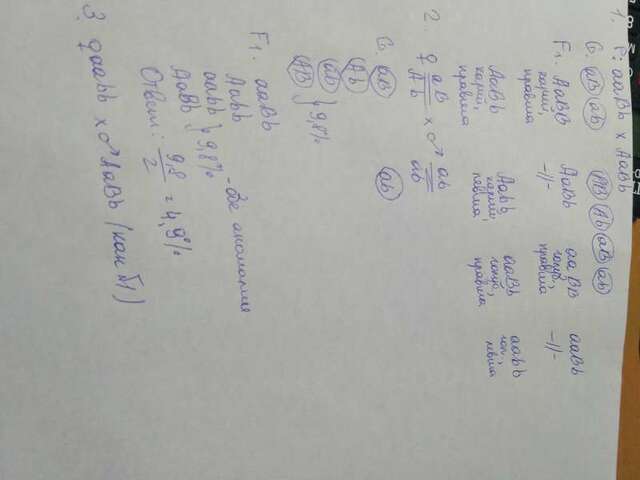 1. P: aaBb x AaBb
G. aB ab AB Ab aB ab
F1. AaBB AaBb aaBB aaBb
карий, правша -//- голуб, правша -//-
AaBb Aabb aaBb aabb
карий, правша карий, левша голуб, правша гол, левша
2. ♀ aB/Ab x ♂ ab/ab
G. aB Ab ab
ab AB } 9,8%
F1. aaBb
Aabb
aabb } 9,8% - обе аномалии
AaBb
Ответ: 9,8/2 = 4,9%
3. ♀ aabb x ♂ AaBb (как №1)